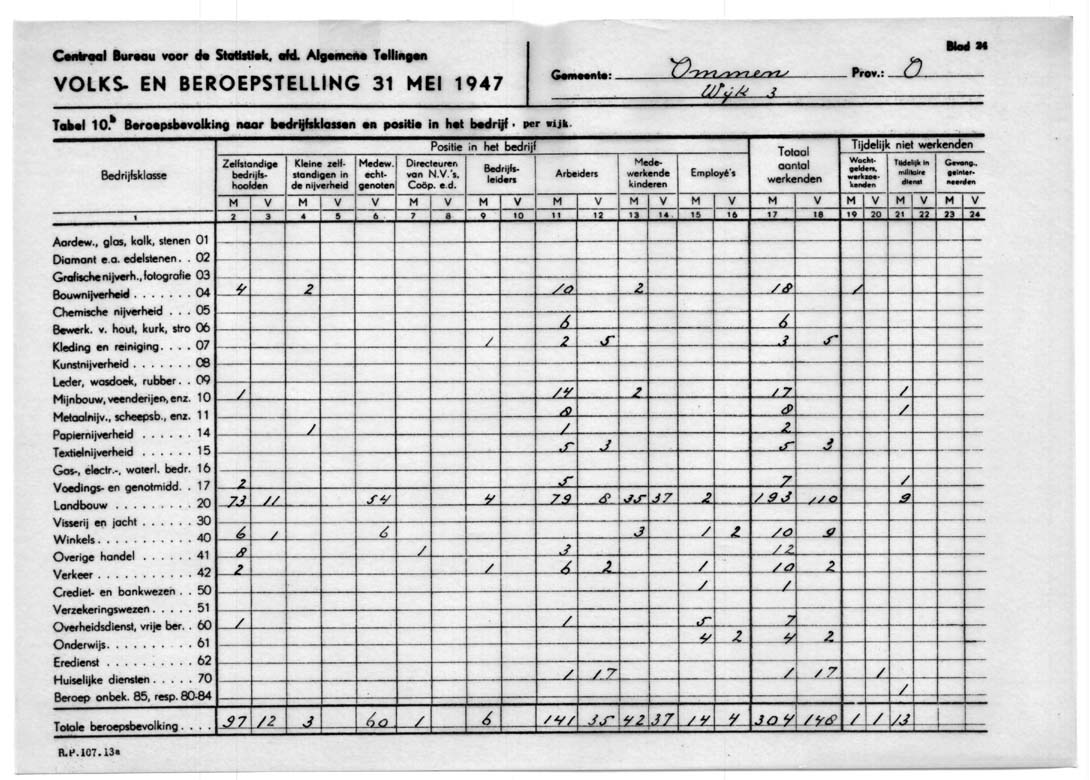 Centraal Bureau voor de Statistiek, afd. Algemene Tellingen
Blad 24
VOLKS- EN BEROEPSTELLING 31 MEI 1947
Gemeente: Ommen Prov.: O
Wijk 3
Tabel 10.b Beroepsbevolking naar bedrijfsklassen en positie in het bedrijf, per wijk.
Bedrijfsklasse
Positie in het bedrijf
Totaal aantal werkenden
Tijdelijk niet werkenden
Zelfstandige bedrijfs-hoofden
Kleine zelf-standigen in de nijverheid
Medew. echt-genoten
Directeuren van N.V.'s, Coöp. e.d.
Bedrijfs-leiders
Arbeiders
Mede-werkende kinderen
Employé's
Wacht-gelders, werkzoe-kenden
Tijdelijk in militaire dienst
Gevang., geinter-neerden
M V M V V M V M V M V M V M V M V M V M V M V
1 2 3 4 5 6 7 8 9 10 11 12 13 14 15 16 17 18 19 20 21 22 23 24
Aardew., glas, kalk, stenen 01
Diamant e.a. edelstenen. . 02
Grafische nijverh., fotografie 03
Bouwnijverheid . . . . . . . 04 4 2 10 2 18 1
Chemische nijverheid . . . 05
Bewerk. v. hout, kurk, stro 06 6 6
Kleding en reiniging. . . . 07 1 2 5 3 5
Kunstnijverheid . . . . . . . 08
Leder, wasdoek, rubber. . 09
Mijnbouw, veenderijen, enz. 10 1 14 2 17 1
Metaalnijv., scheepsb., enz. 11 8 8 1
Papiernijverheid . . . . . . 14 1 1 2
Textielnijverheid . . . . . . 15 5 3 5 3
Gas-, electr.-, waterl. bedr. 16
Voedings- en genotmidd. . 17 2 5 7 1
Landbouw . . . . . . . . . . 20 73 11 54 4 79 8 35 37 2 193 110 9
Visserij en jacht . . . . . . 30
Winkels . . . . . . . . . . . 40 6 1 6 3 1 2 10 9
Overige handel . . . . . . 41 8 1 3 12
Verkeer . . . . . . . . . . . 42 2 1 6 2 1 10 2
Crediet- en bankwezen . . 50 1 1
Verzekeringswezen. . . . . 51
Overheidsdienst, vrije ber. . 60 1 1 5 7
Onderwijs. . . . . . . . . . 61 4 2 4 2
Eredienst . . . . . . . . . . 62
Huiselijke diensten . . . . . 70 1 17 1 17 1
Beroep onbek. 85, resp. 80-84 1
Totale beroepsbevolking . . . . 97 12 3 60 1 6 141 35 42 37 14 4 304 148 1 1 13
R.P.107.13a